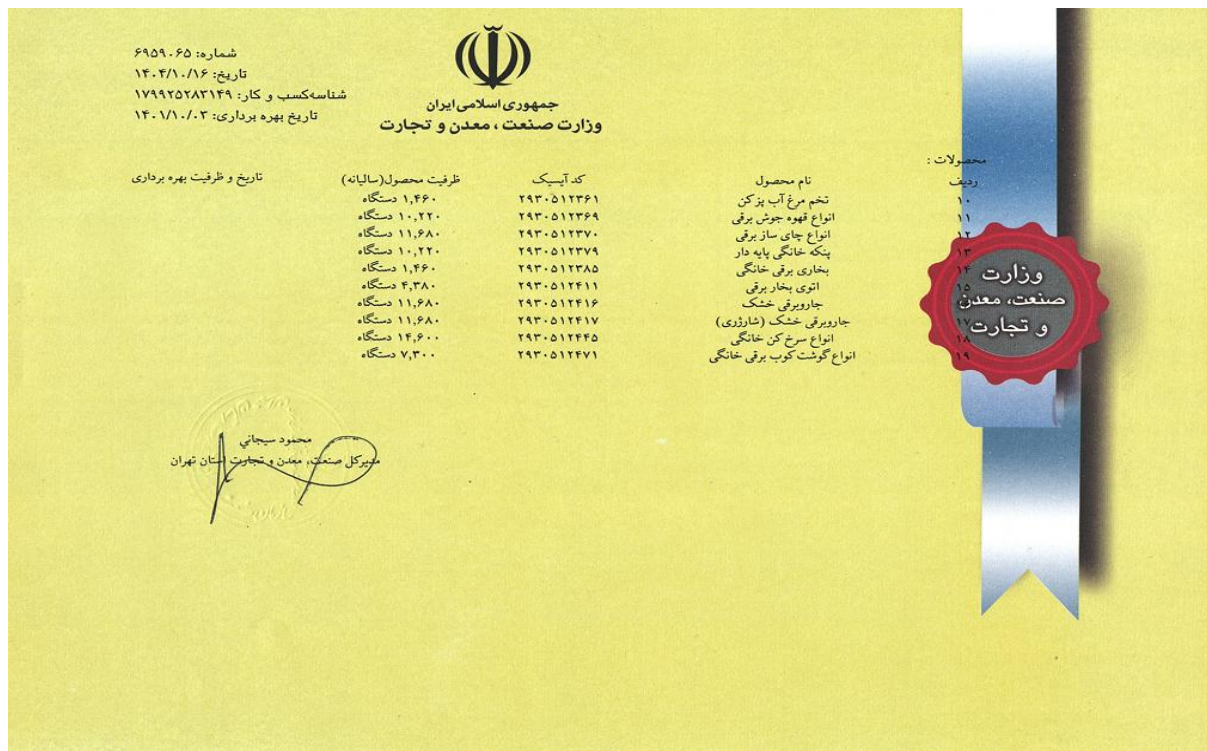 شماره: ۶۹۵۹۰۶۵
تاریخ: ۱۴۰۴/۱۰/۱۶
شناسه‌کسب و کار: ۱۷۹۹۲۵۲۸۳۱۴۹
تاریخ بهره برداری: ۱۴۰۱/۱۰/۰۳
جمهوری اسلامی ایران
وزارت صنعت ، معدن و تجارت
محصولات :
ردیف نام محصول کد آیسیک ظرفیت محصول(سالیانه) تاریخ و ظرفیت بهره برداری
۱۰ تخم مرغ آب پزکن ۲۹۳۰۵۱۲۳۶۱ ۱,۴۶۰ دستگاه
۱۱ انواع قهوه جوش برقی ۲۹۳۰۵۱۲۳۶۹ ۱۰,۲۲۰ دستگاه
۱۲ انواع چای ساز برقی ۲۹۳۰۵۱۲۳۷۰ ۱۱,۶۸۰ دستگاه
۱۳ پنکه خانگی پایه دار ۲۹۳۰۵۱۲۳۷۹ ۱۰,۲۲۰ دستگاه
۱۴ بخاری برقی خانگی ۲۹۳۰۵۱۲۳۸۵ ۱,۴۶۰ دستگاه
۱۵ اتوی بخار برقی ۲۹۳۰۵۱۲۴۱۱ ۴,۳۸۰ دستگاه
جاروبرقی خشک ۲۹۳۰۵۱۲۴۱۶ ۱۱,۶۸۰ دستگاه
۱۷ جاروبرقی خشک (شارژری) ۲۹۳۰۵۱۲۴۱۷ ۱۱,۶۸۰ دستگاه
۱۸ انواع سرخ کن خانگی ۲۹۳۰۵۱۲۴۴۵ ۱۴,۶۰۰ دستگاه
۱۹ انواع گوشت کوب برقی خانگی ۲۹۳۰۵۱۲۴۷۱ ۷,۳۰۰ دستگاه
وزارت
صنعت، معدن
و تجارت
محمود سیجاني
مدیرکل صنعت، معدن و تجارت استان تهران